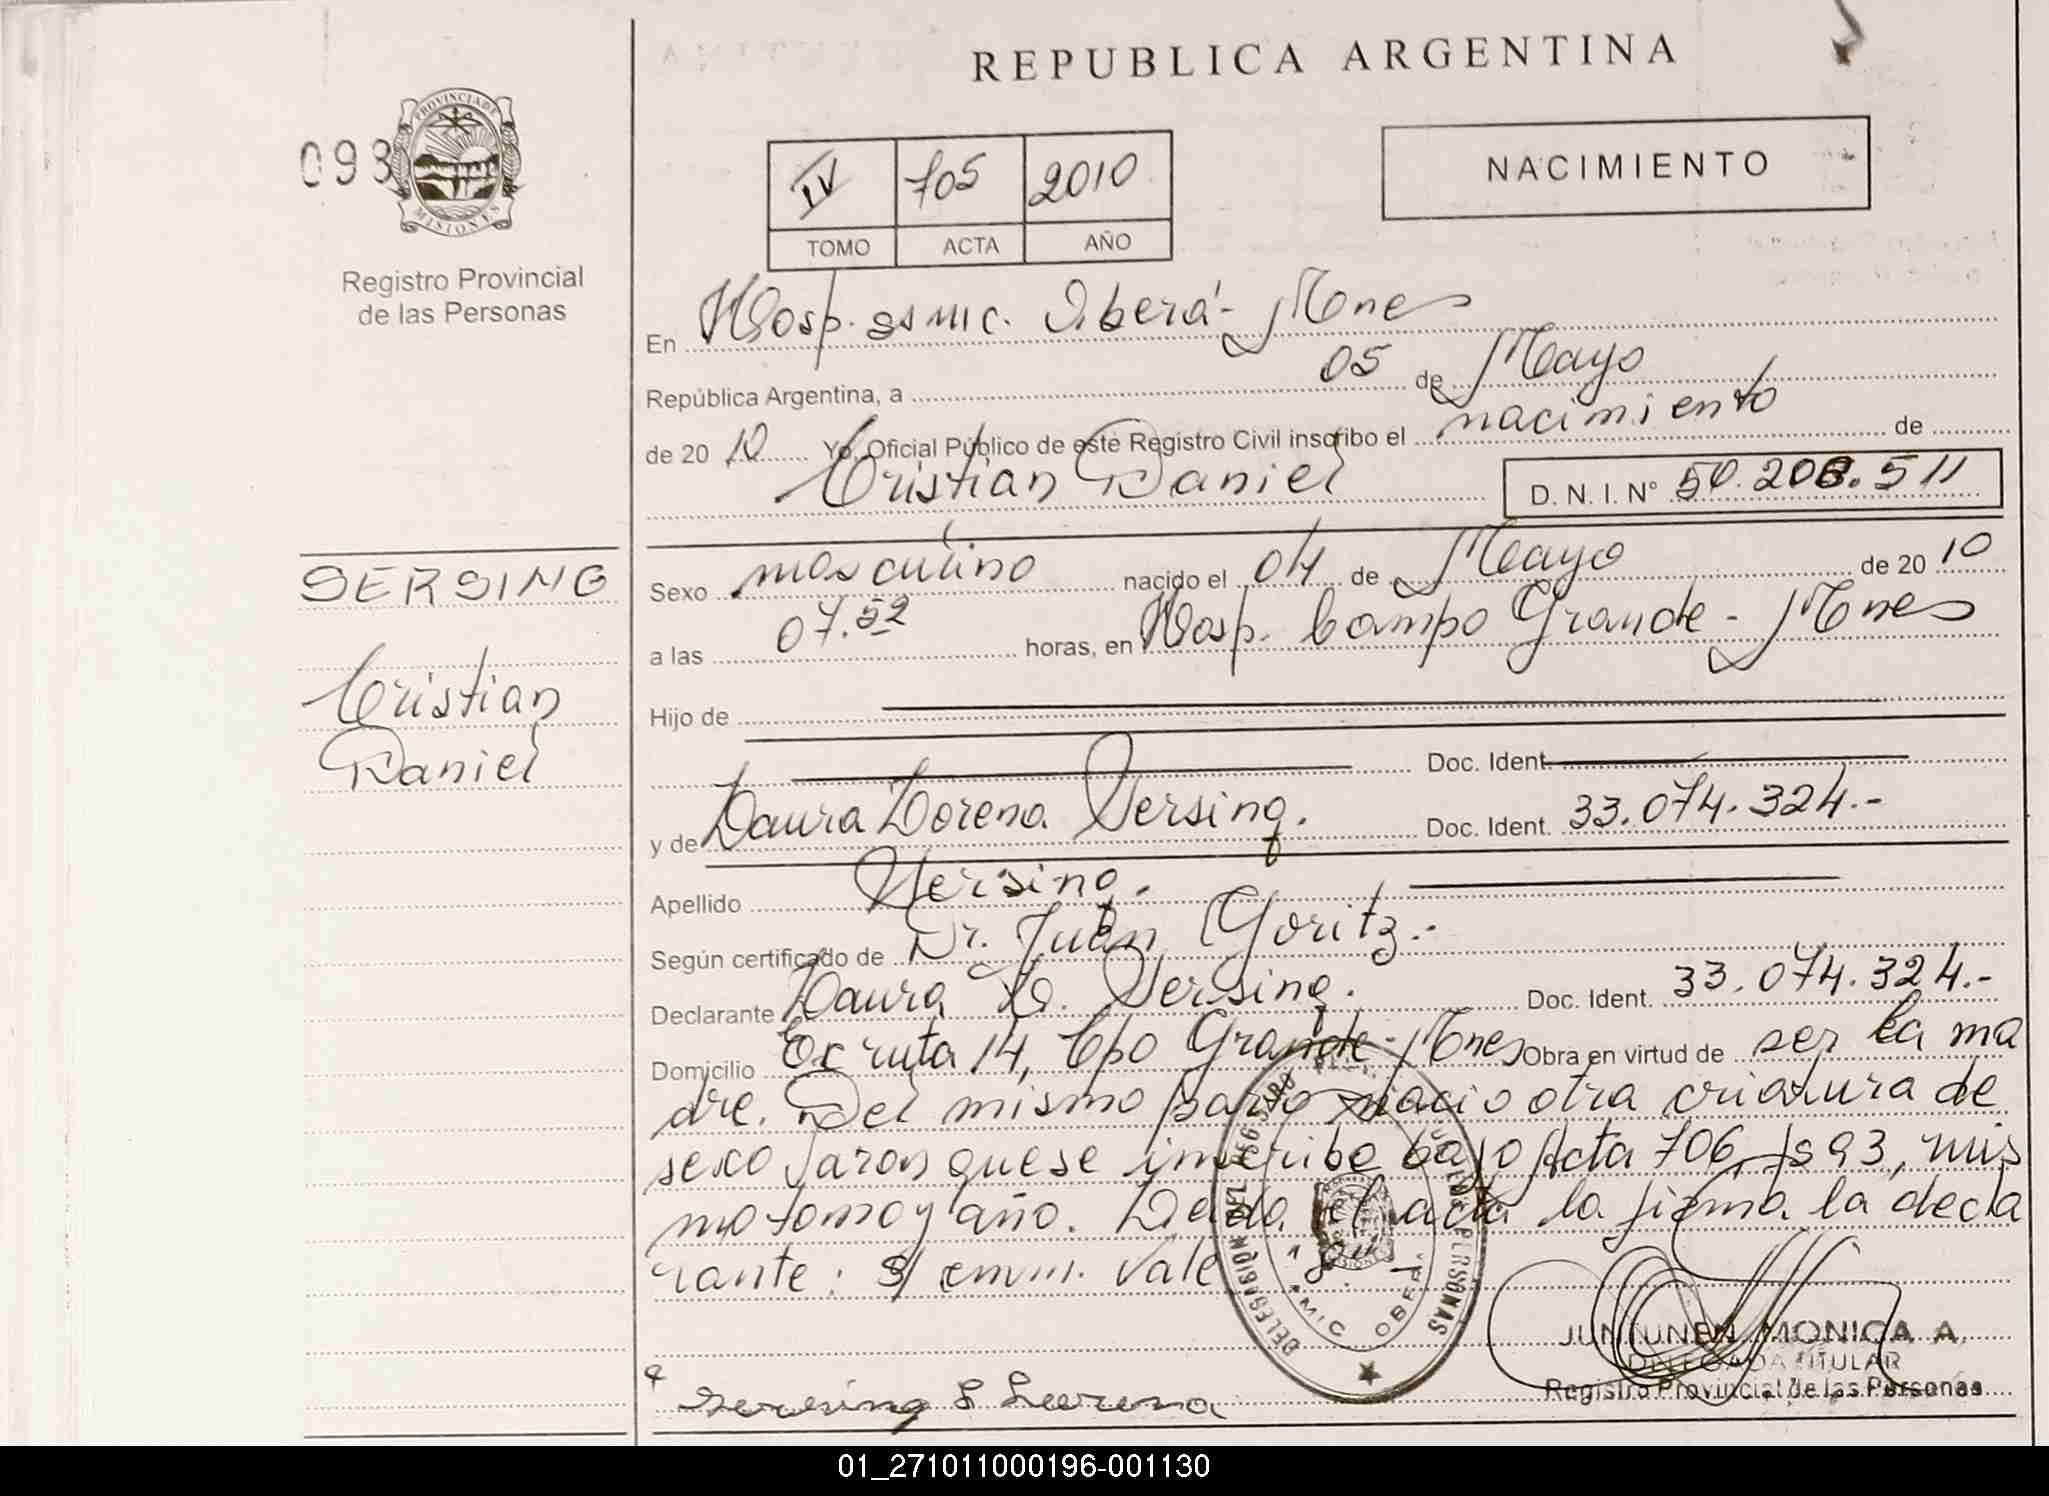 REPUBLICA ARGENTINA
093
PROVINCIA DE
MISIONES
Registro Provincial
de las Personas
IV 705 2010
TOMO ACTA AÑO
NACIMIENTO
En Hosp. SSMIC. Oberá - Mnes
República Argentina, a 05 de Mayo
de 20 10 Yo, Oficial Público de este Registro Civil inscribo el nacimiento de
Cristian Daniel D. N. I. N° 50.208.511
SERSING
Cristian
Daniel
Sexo masculino nacido el 04 de Mayo de 20 10
a las 07.52 horas, en Hosp. Campo Grande - Mnes
Hijo de
Doc. Ident.
y de Laura Lorena Sersing. Doc. Ident. 33.074.324.-
Apellido Sersing.
Según certificado de Dr. Juan Goritz.-
Declarante Laura L. Sersing. Doc. Ident. 33.074.324.-
Domicilio ruta 14, Cpo Grande - Mnes Obra en virtud de ser la ma
dre. Del mismo parto nacio otra criatura de
sexo varon que se inscribe bajo Acta 706, fs 93, mis
mo tomo y año. Leida el acta la firma la decla
rante: S/ enm. Vale "8".
DELEGACION DEL REGISTRO PERSONAS
MIC OBERA
JUNTUNEN, MONICA A.
DELEGADA TITULAR
Registro Provincial de las Personas
Sersing L Lorena
01_271011000196-001130